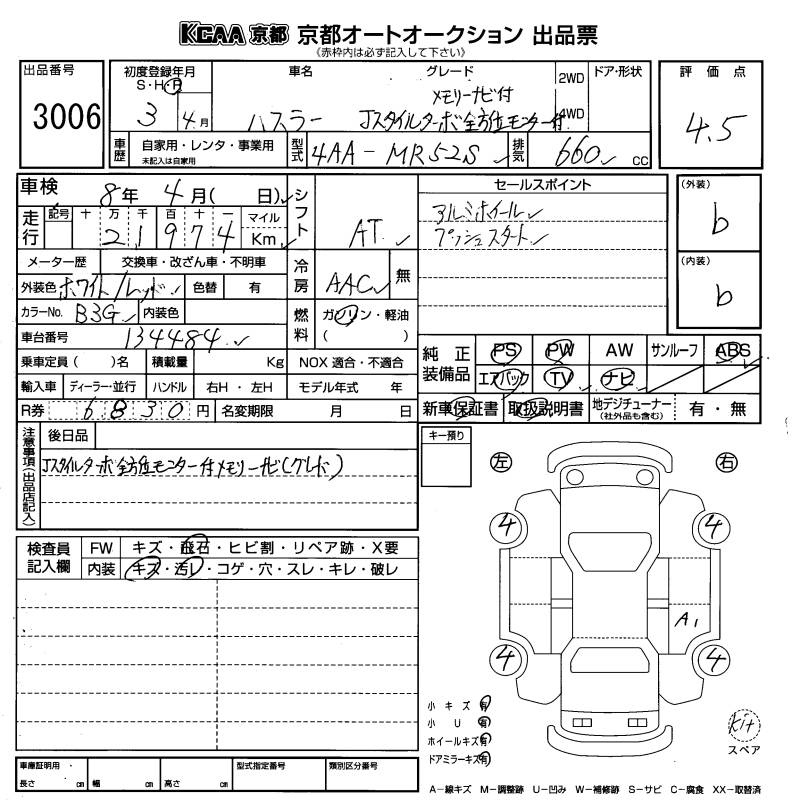 KCAA 京都 京都オートオークション 出品票
《赤枠内は必ず記入して下さい》
出品番号 3006
初度登録年月 S・H・R 3 4月
車名 ハスラー
グレード メモリーナビ付 Jスタイルターボ 全方位モニター付
2WD 4WD ドア・形状
評価点 4.5
車歴 自家用・レンタ・事業用 未記入は自家用
型式 4AA-MR52S
排気 660 cc
車検 8年 4月( 日)
シフト AT
走行 記号 十 万 千 百 十 一 マイル Km
2 1 9 7 4
メーター歴 交換車・改ざん車・不明車
冷房 AAC 無
外装色 ホワイト/レッド 色替 有
カラーNo. B3G 内装色
燃料 ガソリン・軽油 ( )
車台番号 134484
乗車定員 ( )名 積載量 Kg NOX 適合・不適合
輸入車 ディーラー・並行 ハンドル 右H・左H モデル年式 年
R券 6830円 名変期限 月 日
セールスポイント
アルミホイール
プッシュスタート
(外装) b
(内装) b
純正装備品 PS PW AW サンルーフ ABS
エアバック TV ナビ
新車保証書 取扱説明書 地デジチューナー (社外品も含む) 有・無
注意事項(出品店記入)
後日品
Jスタイルターボ 全方位モニター付メモリーナビ(グレード)
キー預り
左 右
4 4
A1
4 4
検査員記入欄 FW キズ・飛石・ヒビ割・リペア跡・X要
内装 キズ・汚レ・コゲ・穴・スレ・キレ・破レ
小キズ 有
小U 有
ホイールキズ 有
ドアミラーキズ 有
kit
スペア
車庫証明用・ 長さ cm 幅 cm 高さ cm 型式指定番号 類別区分番号
A-線キズ M-調整跡 U-凹み W-補修跡 S-サビ C-腐食 XX-取替済